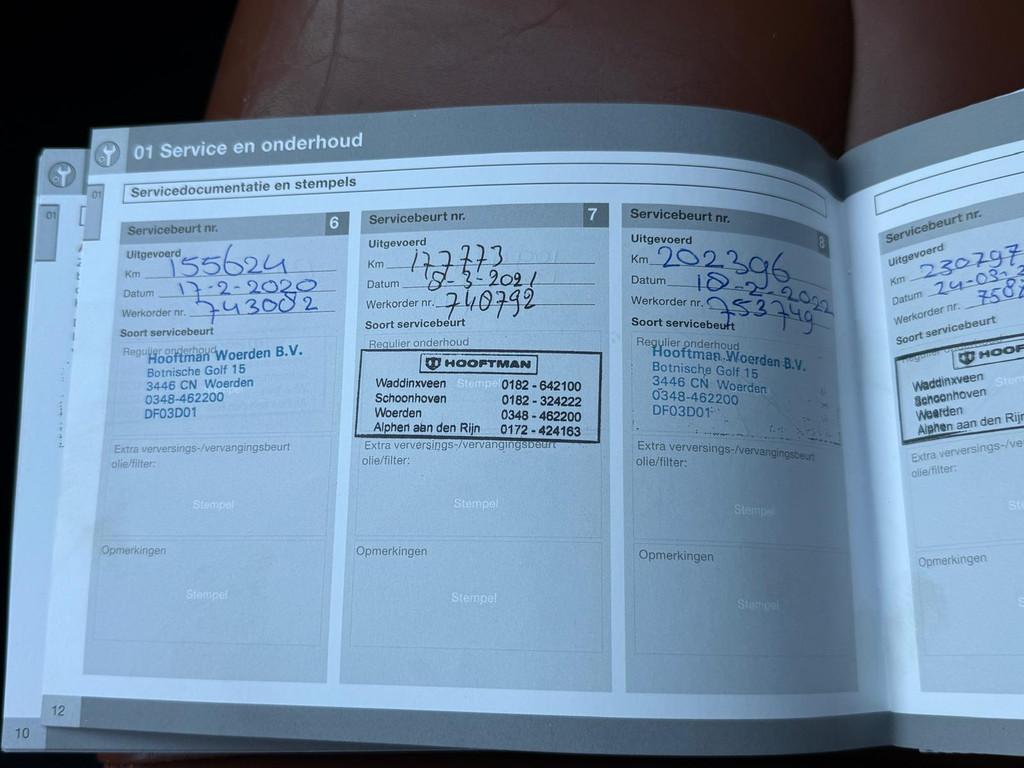 01 Service en onderhoud
01
01
Servicedocumentatie en stempels
Servicebeurt nr. 6
Uitgevoerd
Km 155624
Datum 17-2-2020
Werkorder nr. 743002
Soort servicebeurt
Regulier onderhoud
Hooftman Woerden B.V.
Botnische Golf 15
3446 CN Woerden
0348-462200
DF03D01
Extra verversings-/vervangingsbeurt
olie/filter:
Stempel
Opmerkingen
Stempel
Servicebeurt nr. 7
Uitgevoerd
Km 177773
Datum 8-3-2021
Werkorder nr. 740792
Soort servicebeurt
Regulier onderhoud
HOOFTMAN
Waddinxveen Stempel 0182 - 642100
Schoonhoven 0182 - 324222
Woerden 0348 - 462200
Alphen aan den Rijn 0172 - 424163
Extra verversings-/vervangingsbeurt
olie/filter:
Stempel
Opmerkingen
Stempel
Servicebeurt nr. 8
Uitgevoerd
Km 202396
Datum 18-2-2022
Werkorder nr. 753749
Soort servicebeurt
Regulier onderhoud
Hooftman Woerden B.V.
Botnische Golf 15
3446 CN Woerden
0348-462200
DF03D01
Extra verversings-/vervangingsbeurt
olie/filter:
Stempel
Opmerkingen
Stempel
Servicebeurt nr.
Uitgevoerd
Km 230797
Datum 24-03-
Werkorder nr. 7587
Soort servicebeurt
Regulier onderhoud
HOOF
Waddinxveen
Schoonhoven
Woerden
Alphen aan den Rijn
Extra verversings-/ve
olie/filter:
Opmerkingen
12
10